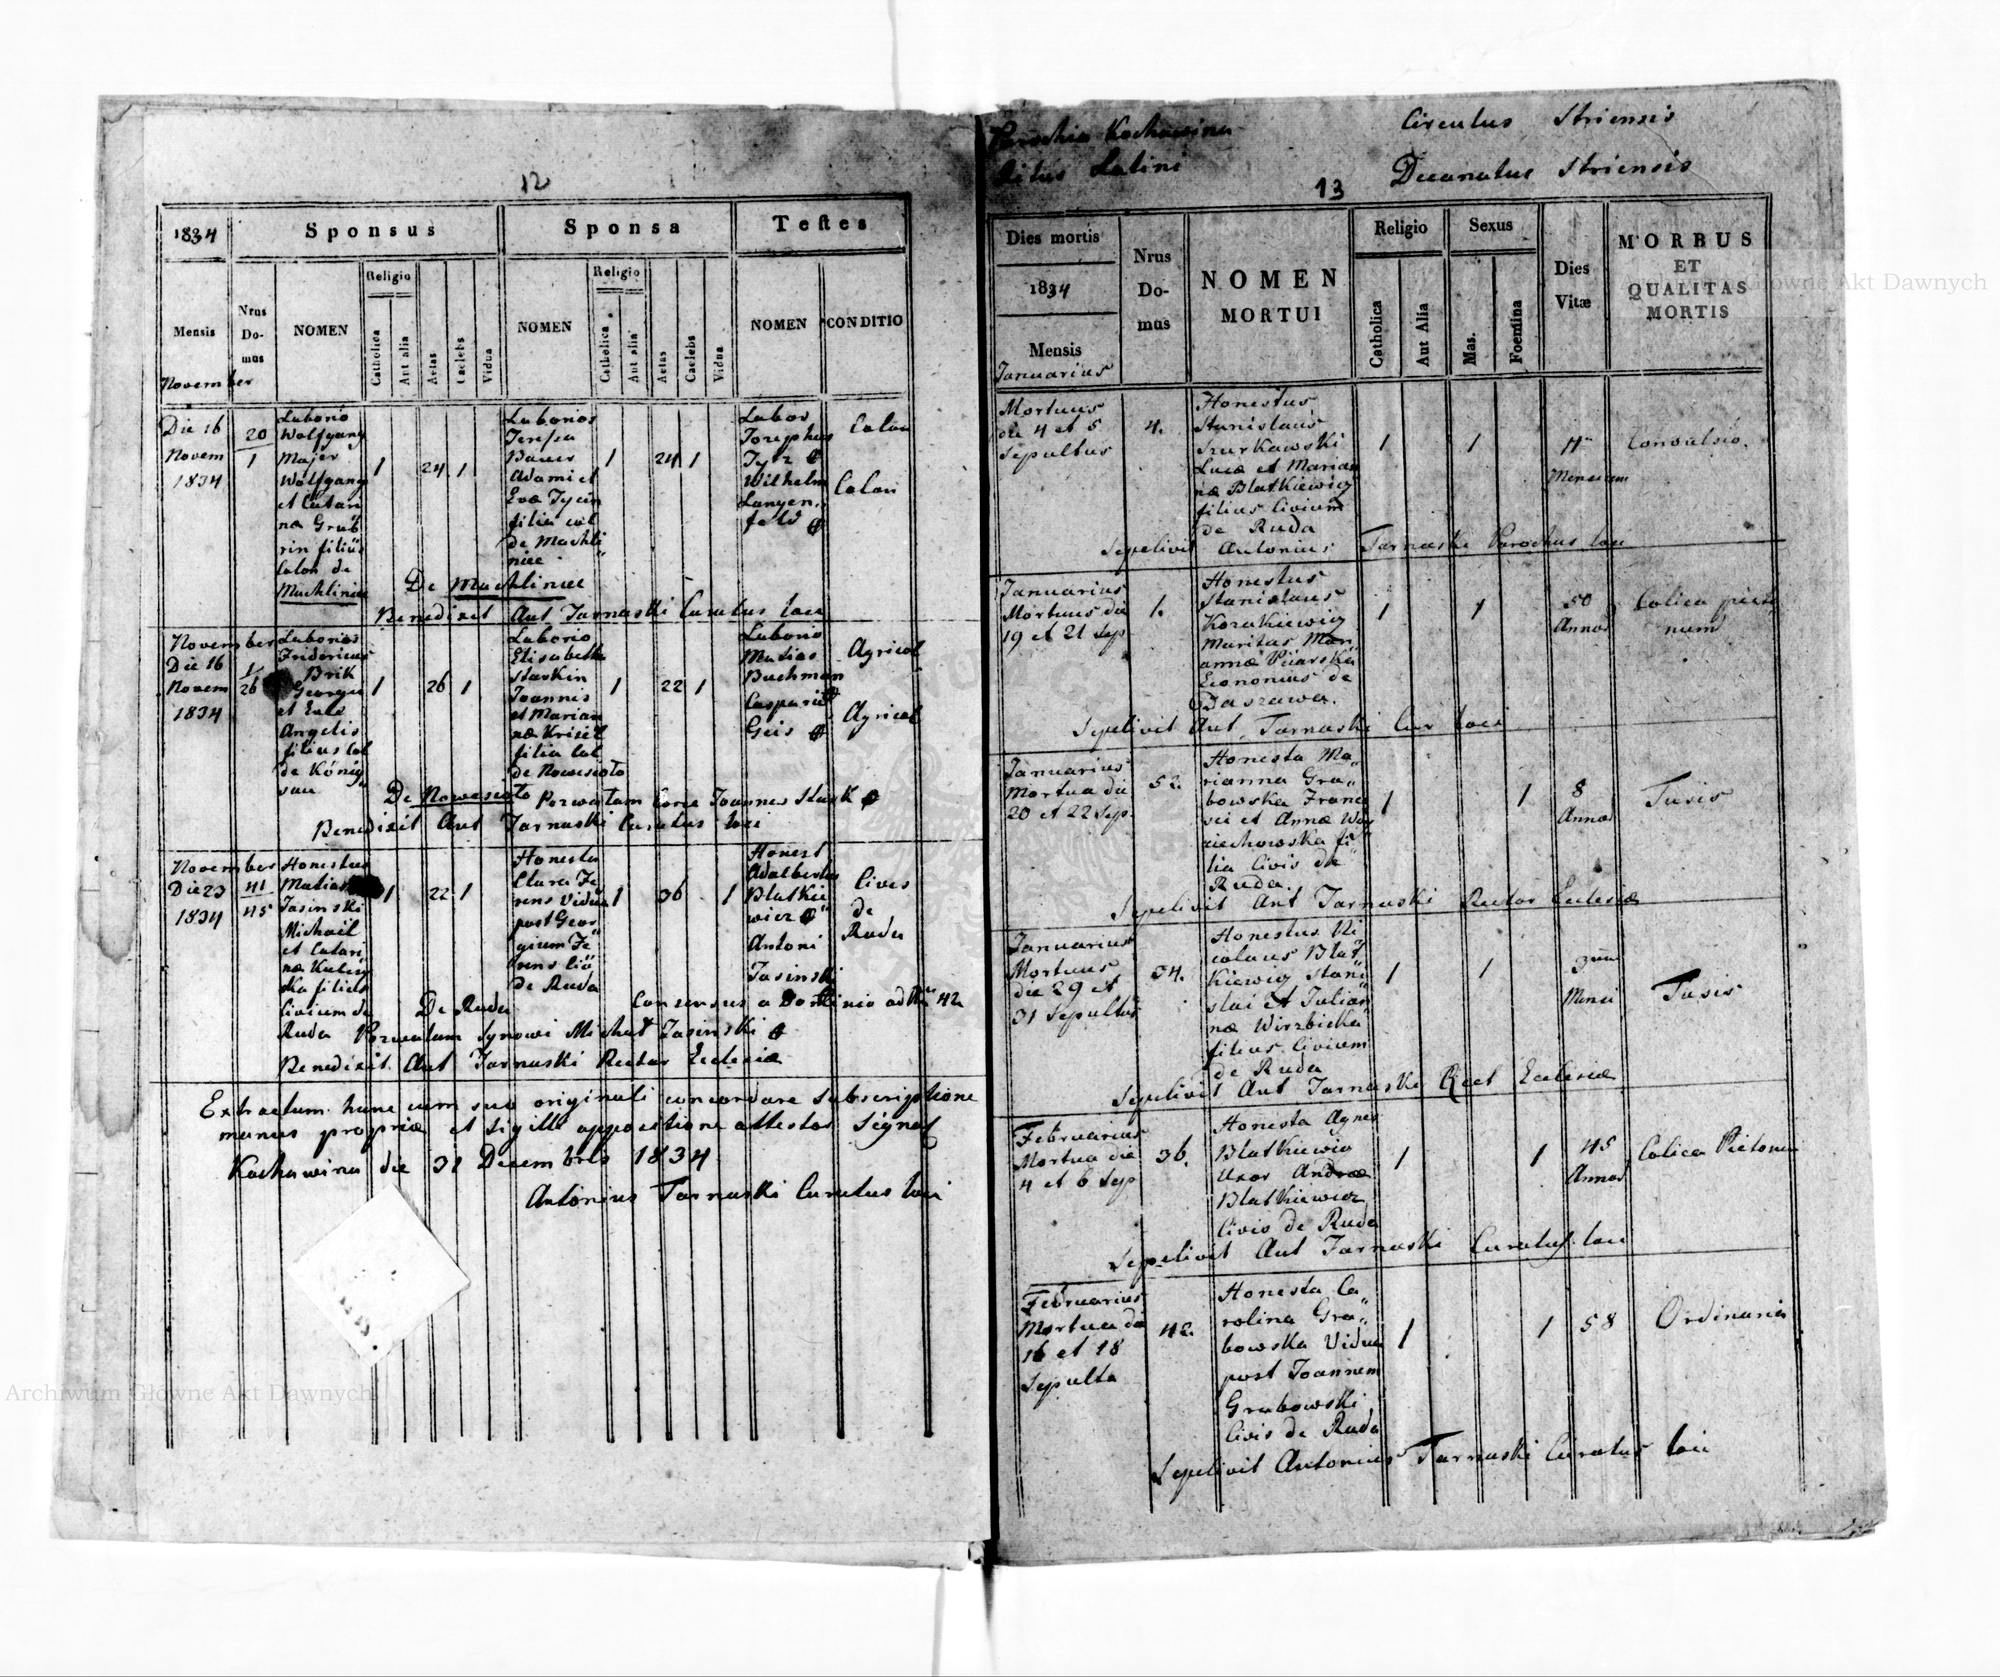 12
1834
Sponsus
Sponsa
Testes
Mensis
Nrus Do-mus
NOMEN
Religio
Catholica
Aut alia
Aetas
Caelebs
Vidua
NOMEN
Religio
Catholica
Aut alia
Aetas
Caelebs
Vidua
NOMEN
CONDITIO
November
Die 16
Novem
1834
20
1
Laborio
Wolfgang
Majer
Wolfgang
et Catari
næ Grub
rin filius
Colon de
Machlinie
1
24
1
Laborios
Teresa
Bauer
Adami et
Evæ
filia col
de Machli
niec
1
24
1
Labor
Josephus
Wilhelm
Langen
feld
Colon
Colon
De Machliniec
Benedixit Ant Tarnaski Curatus loci
November
Die 16
Novem
1834
1
26
Laborios
Fridericus
Brik
Georgii
et Evæ
Angelis
filius col
de König
sau
1
26
1
Laborio
Elisabetha
Starkin
Joannis
et Marian
næ
filia col
de Nowesioło
1
22
1
Laborio
Matias
Buchman
Caspar
Geis
Agricol
Agricol
De Nowesioło Pozwalam Corce Joannes Stark
Benedixit Ant Tarnaski Curatus loci
November
Die 23
1834
41
45
Honestus
Matias
Jasinski
Michael
et Catari
næ
ska filius
Civium de
Ruda
1
22
1
Honesta
Clara Fe
rens Vidua
post Geor
gium Fe
rens
de Ruda
1
36
1
Honest
Adalbertus
Blatkie
wicz
Antoni
Jasinski
Cives
de
Ruda
De Ruda Consensus a Dominio ad Nr 42
Pozwalam Synowi Michał Jasinski
Benedixit Ant Tarnaski Rector Ecclesiæ
Extractum hunc cum suo originali concordare subscriptione
manus propriæ et sigilli appositione attestor Signat
Kochawina die 31 Decembris 1834
Antonius Tarnaski Curatus loci
Parochia Kochawina
Ritus Latini
Circulus Striensis
Decanatus Striensis
13
Dies mortis
1834
Mensis
Januarius
Nrus Do-mus
NOMEN
MORTUI
Religio
Catholica
Aut Alia
Sexus
Mas.
Foemina
Dies
Vitæ
MORBUS
ET
QUALITAS
MORTIS
Mortuus
die 4 et 5
Sepultus
4.
Honestus
Stanislaus
Szurkawski
Lucæ et Marian
næ Blatkiewicz
filius Civium
de Ruda
1
1
Mensium
Convulsio.
Sepelivit Antonius Tarnaski Parochus loci
Januarius
Mortuus die
19 et 21 Sep
1.
Honestus
Stanislaus
Kozakiewicz
Maritus Mari
annæ
Economus de
Daszawa.
1
1
50
Annor
Colica picto
num
Sepelivit Ant. Tarnaski Cur loci
Januarius
Mortua die
20 et 22 Sep.
52.
Honesta Ma
rianna Gra
bowska Franc
sci et Annæ Woy
ciechowska fi
lia Civis de
Ruda.
1
1
8
Annor
Tusis
Sepelivit Ant Tarnaski Rector Ecclesiæ
Januarius
Mortuus
die 29 et
31 Sepultus
34.
Honestus Ni
colaus Blat
Kiewicz Stani
slai et Julian
næ Wirzbicka
filius Civium
de Ruda
1
1
3
Mensi
Tusis
Sepelivit Ant Tarnaski Rect Ecclesiæ
Februarius
Mortua die
4 et 6 Sep
36.
Honesta Agnes
Blatkiewicz
Uxor Andreæ
Blatkiewicz
Civis de Ruda
1
1
45
Annor
Colica Pictonum
Sepelivit Ant Tarnaski Curatus loci
Februarius
Mortua die
16 et 18
Sepulta
42.
Honesta Ca
rolina Gra
bowska Vidua
post Joannem
Grabowski
Civis de Ruda
1
1
58
Ordinaria
Sepelivit Antonius Tarnaski Curatus loci
Archiwum Główne Akt Dawnych
Archiwum Główne Akt Dawnych